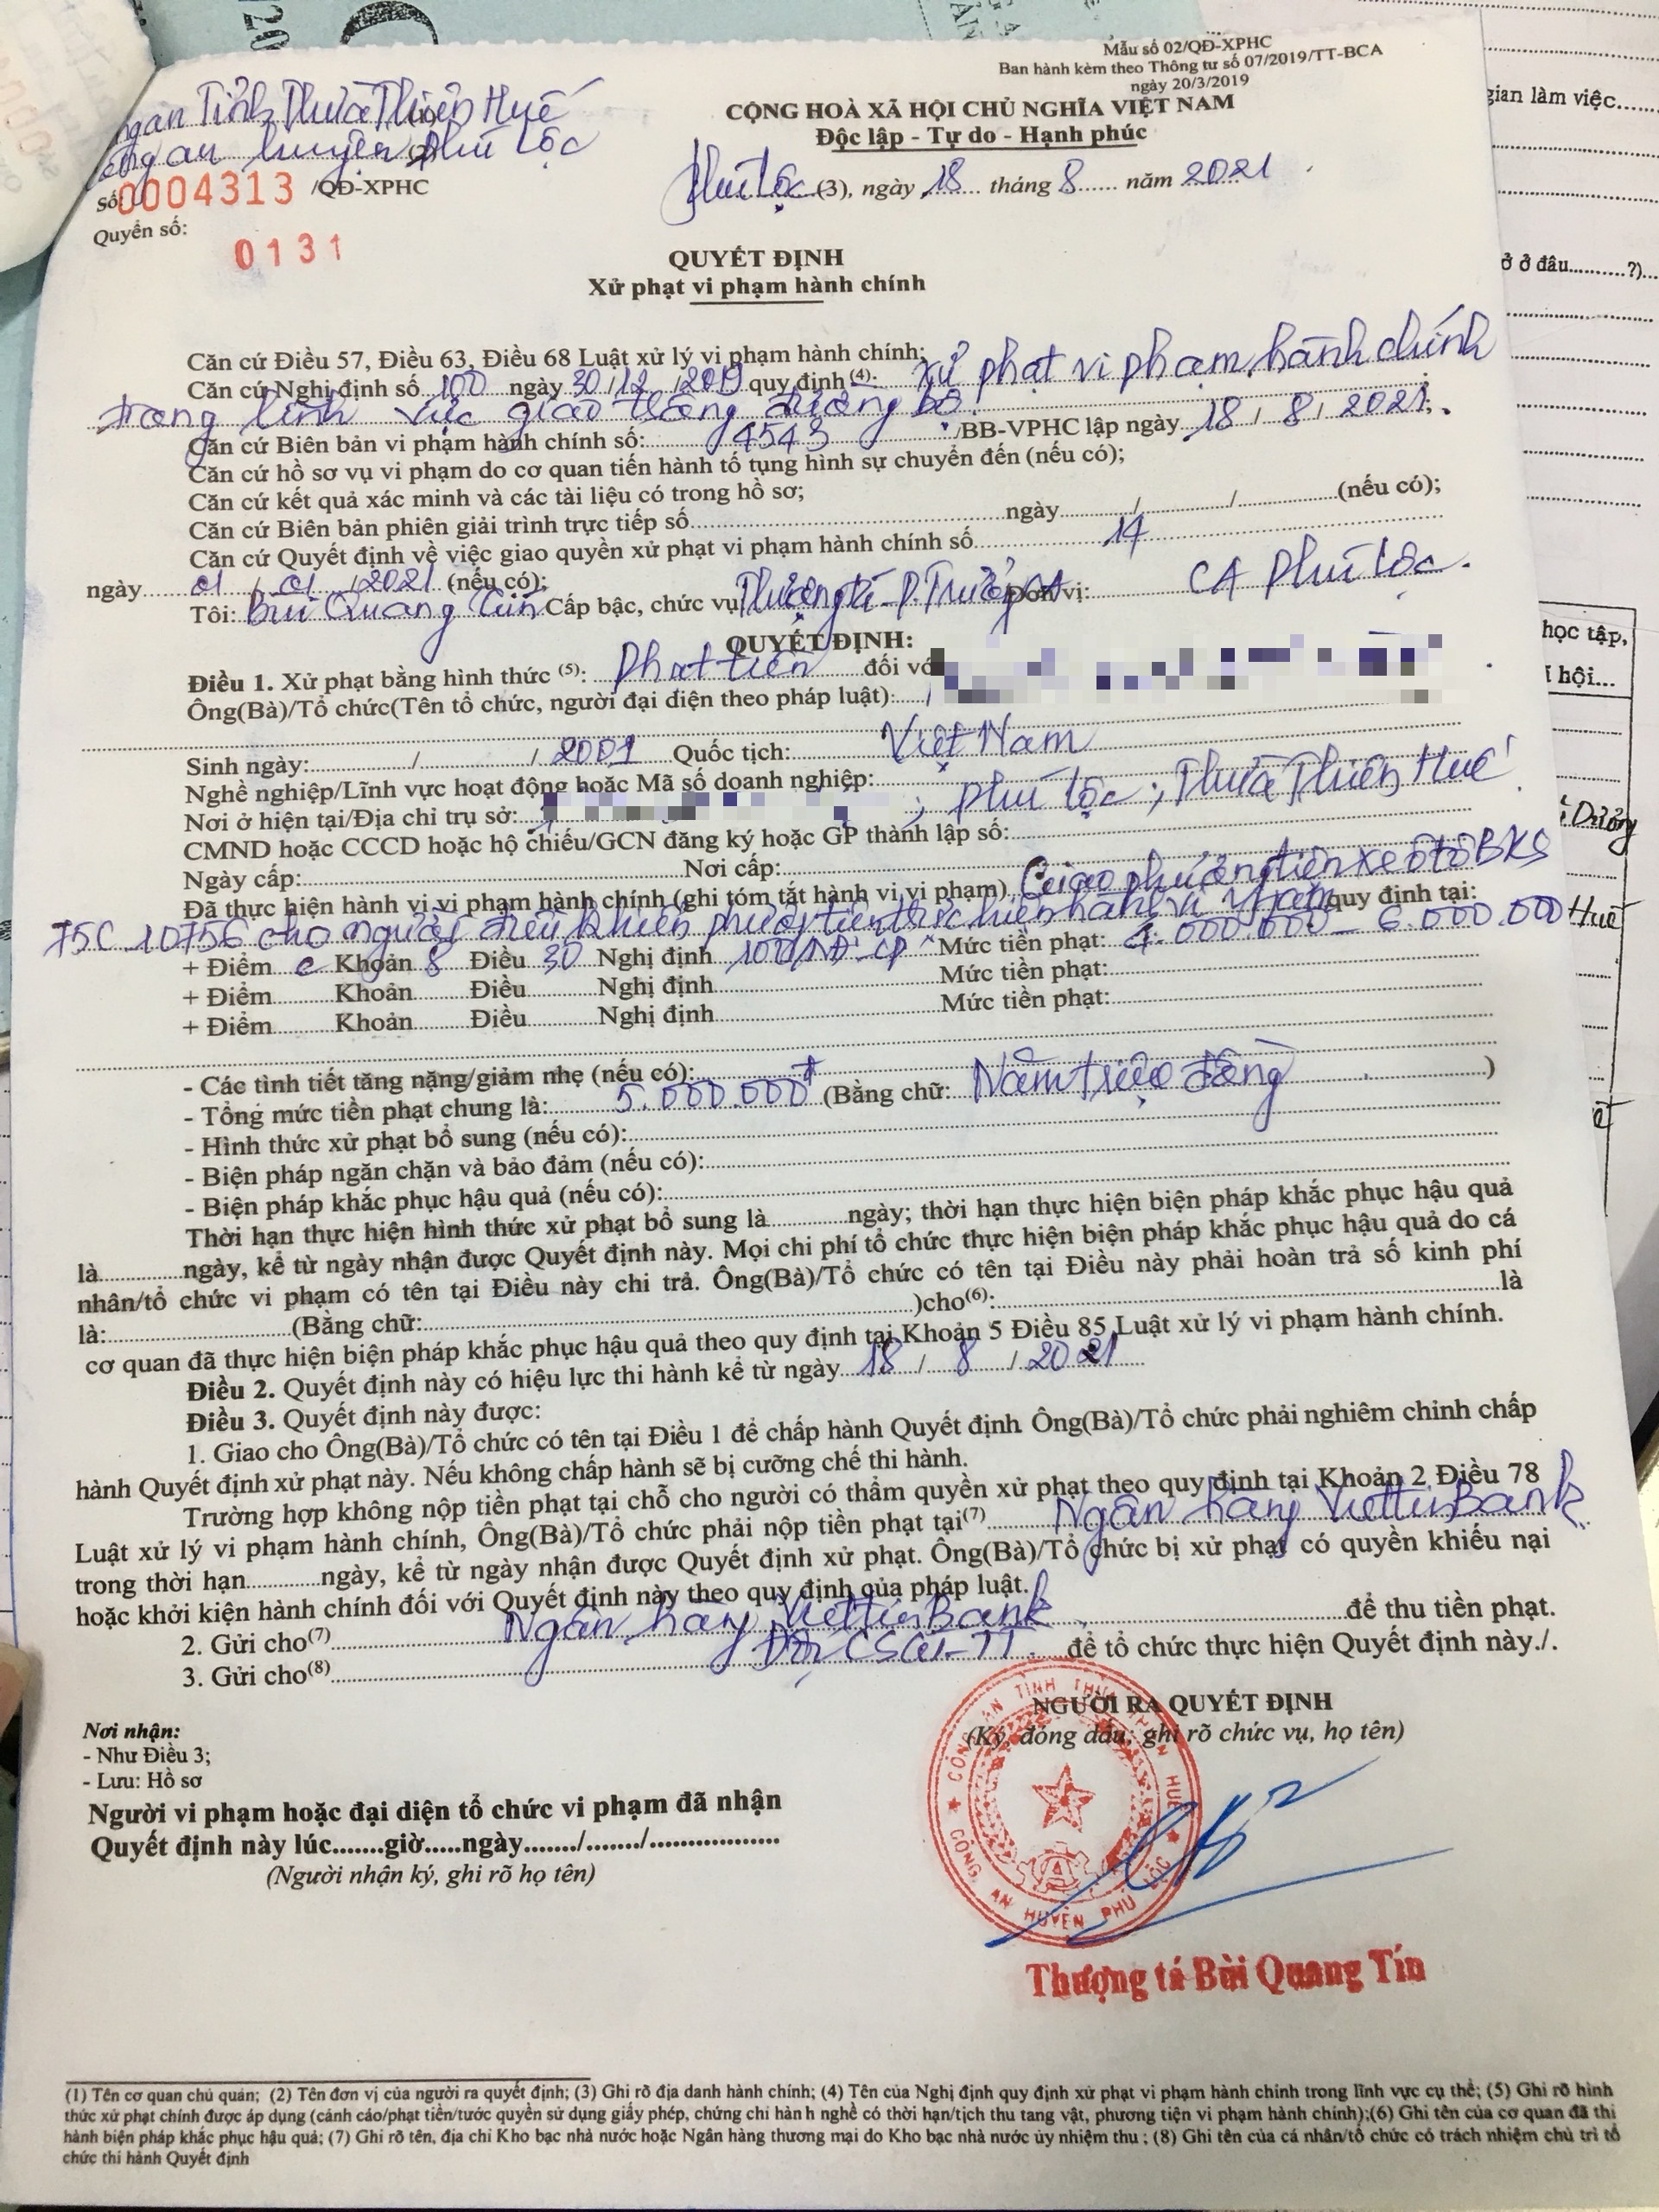 Mẫu số 02/QĐ-XPHC
Ban hành kèm theo Thông tư số 07/2019/TT-BCA
ngày 20/3/2019
CỘNG HOÀ XÃ HỘI CHỦ NGHĨA VIỆT NAM
Độc lập - Tự do - Hạnh phúc
ngan Tỉnh Thừa Thiên Huế (1)
Công an huyện Phú Lộc (2)
Số: 0004313 /QĐ-XPHC
Phú Lộc (3), ngày 18 tháng 8 năm 2021
Quyển số: 0131
QUYẾT ĐỊNH
Xử phạt vi phạm hành chính
Căn cứ Điều 57, Điều 63, Điều 68 Luật xử lý vi phạm hành chính;
Căn cứ Nghị định số 100 ngày 30/12/2019 quy định (4): xử phạt vi phạm hành chính
trong lĩnh vực giao thông đường bộ.
Căn cứ Biên bản vi phạm hành chính số: 4543 /BB-VPHC lập ngày 18/8/2021;
Căn cứ hồ sơ vụ vi phạm do cơ quan tiến hành tố tụng hình sự chuyển đến (nếu có);
Căn cứ kết quả xác minh và các tài liệu có trong hồ sơ;
Căn cứ Biên bản phiên giải trình trực tiếp số............ngày......./......./............(nếu có);
Căn cứ Quyết định về việc giao quyền xử phạt vi phạm hành chính số 14
ngày 01/01/2021 (nếu có);
Tôi: Bùi Quang Tín Cấp bậc, chức vụ Thượng tá - P. Trưởng CA Đơn vị: CA Phú Lộc.
QUYẾT ĐỊNH:
Điều 1. Xử phạt bằng hình thức (5): Phạt tiền đối với
Ông(Bà)/Tổ chức(Tên tổ chức, người đại diện theo pháp luật):
Sinh ngày:......./......./2001 Quốc tịch: Việt Nam
Nghề nghiệp/Lĩnh vực hoạt động hoặc Mã số doanh nghiệp:
Nơi ở hiện tại/Địa chỉ trụ sở: ; Phú Lộc; Thừa Thiên Huế
CMND hoặc CCCD hoặc hộ chiếu/GCN đăng ký hoặc GP thành lập số:
Ngày cấp:............Nơi cấp:
Đã thực hiện hành vi vi phạm hành chính (ghi tóm tắt hành vi vi phạm) Giao phương tiện xe ô tô BKS
75C 10756 cho người điều khiển phương tiện thực hiện hành vi vi phạm quy định tại:
+ Điểm c Khoản 8 Điều 30 Nghị định 100/NĐ-CP Mức tiền phạt: 4.000.000 - 6.000.000
+ Điểm......Khoản......Điều......Nghị định............Mức tiền phạt:
+ Điểm......Khoản......Điều......Nghị định............Mức tiền phạt:
- Các tình tiết tăng nặng/giảm nhẹ (nếu có):
- Tổng mức tiền phạt chung là: 5.000.000đ (Bằng chữ: Năm triệu đồng )
- Hình thức xử phạt bổ sung (nếu có):
- Biện pháp ngăn chặn và bảo đảm (nếu có):
- Biện pháp khắc phục hậu quả (nếu có):
Thời hạn thực hiện hình thức xử phạt bổ sung là............ngày; thời hạn thực hiện biện pháp khắc phục hậu quả
là............ngày, kể từ ngày nhận được Quyết định này. Mọi chi phí tổ chức thực hiện biện pháp khắc phục hậu quả do cá
nhân/tổ chức vi phạm có tên tại Điều này chi trả. Ông(Bà)/Tổ chức có tên tại Điều này phải hoàn trả số kinh phí
là:............(Bằng chữ:............)cho(6):............là
cơ quan đã thực hiện biện pháp khắc phục hậu quả theo quy định tại Khoản 5 Điều 85 Luật xử lý vi phạm hành chính.
Điều 2. Quyết định này có hiệu lực thi hành kể từ ngày 18/8/2021
Điều 3. Quyết định này được:
1. Giao cho Ông(Bà)/Tổ chức có tên tại Điều 1 để chấp hành Quyết định Ông(Bà)/Tổ chức phải nghiêm chỉnh chấp
hành Quyết định xử phạt này. Nếu không chấp hành sẽ bị cưỡng chế thi hành.
Trường hợp không nộp tiền phạt tại chỗ cho người có thẩm quyền xử phạt theo quy định tại Khoản 2 Điều 78
Luật xử lý vi phạm hành chính, Ông(Bà)/Tổ chức phải nộp tiền phạt tại(7) Ngân hàng ViettinBank
trong thời hạn............ngày, kể từ ngày nhận được Quyết định xử phạt. Ông(Bà)/Tổ chức bị xử phạt có quyền khiếu nại
hoặc khởi kiện hành chính đối với Quyết định này theo quy định của pháp luật.
2. Gửi cho(7) Ngân hàng ViettinBank để thu tiền phạt.
3. Gửi cho(8) Đội CSGT-TT để tổ chức thực hiện Quyết định này./.
NGƯỜI RA QUYẾT ĐỊNH
(Ký, đóng dấu, ghi rõ chức vụ, họ tên)
CÔNG AN TỈNH THỪA THIÊN HUẾ
CÔNG AN HUYỆN PHÚ LỘC
Thượng tá Bùi Quang Tín
Nơi nhận:
- Như Điều 3;
- Lưu: Hồ sơ
Người vi phạm hoặc đại diện tổ chức vi phạm đã nhận
Quyết định này lúc.......giờ.....ngày......./......./..................
(Người nhận ký, ghi rõ họ tên)
(1) Tên cơ quan chủ quản; (2) Tên đơn vị của người ra quyết định; (3) Ghi rõ địa danh hành chính; (4) Tên của Nghị định quy định xử phạt vi phạm hành chính trong lĩnh vực cụ thể; (5) Ghi rõ hình
thức xử phạt chính được áp dụng (cảnh cáo/phạt tiền/tước quyền sử dụng giấy phép, chứng chỉ hàn h nghề có thời hạn/tịch thu tang vật, phương tiện vi phạm hành chính);(6) Ghi tên của cơ quan đã thi
hành biện pháp khắc phục hậu quả; (7) Ghi rõ tên, địa chỉ Kho bạc nhà nước hoặc Ngân hàng thương mại do Kho bạc nhà nước ủy nhiệm thu ; (8) Ghi tên của cá nhân/tổ chức có trách nhiệm chủ trì tổ
chức thi hành Quyết định
gian làm việc......
ở ở đâu..........?)...
học tập,
hội...
Dưỡng
Huế